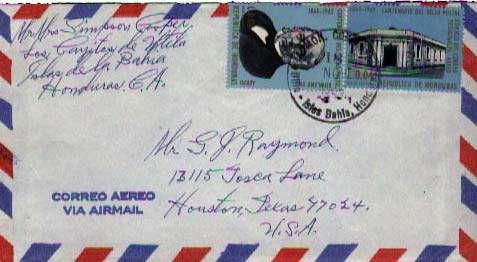 Mr Mrs Simpson Cooper
Los Cayitos de Utila
Islas de la Bahia
Honduras, C.A.
REPUBLICA DE HONDURAS
1865-1965 CENTENARIO DEL SELLO POSTAL
REPUBLICA DE HONDURAS
Islas Bahia, Hond
Mr G. J. Raymond
13115 Tosca Lane
Houston, Texas 77024.
U.S.A.
CORREO AEREO
VIA AIRMAIL